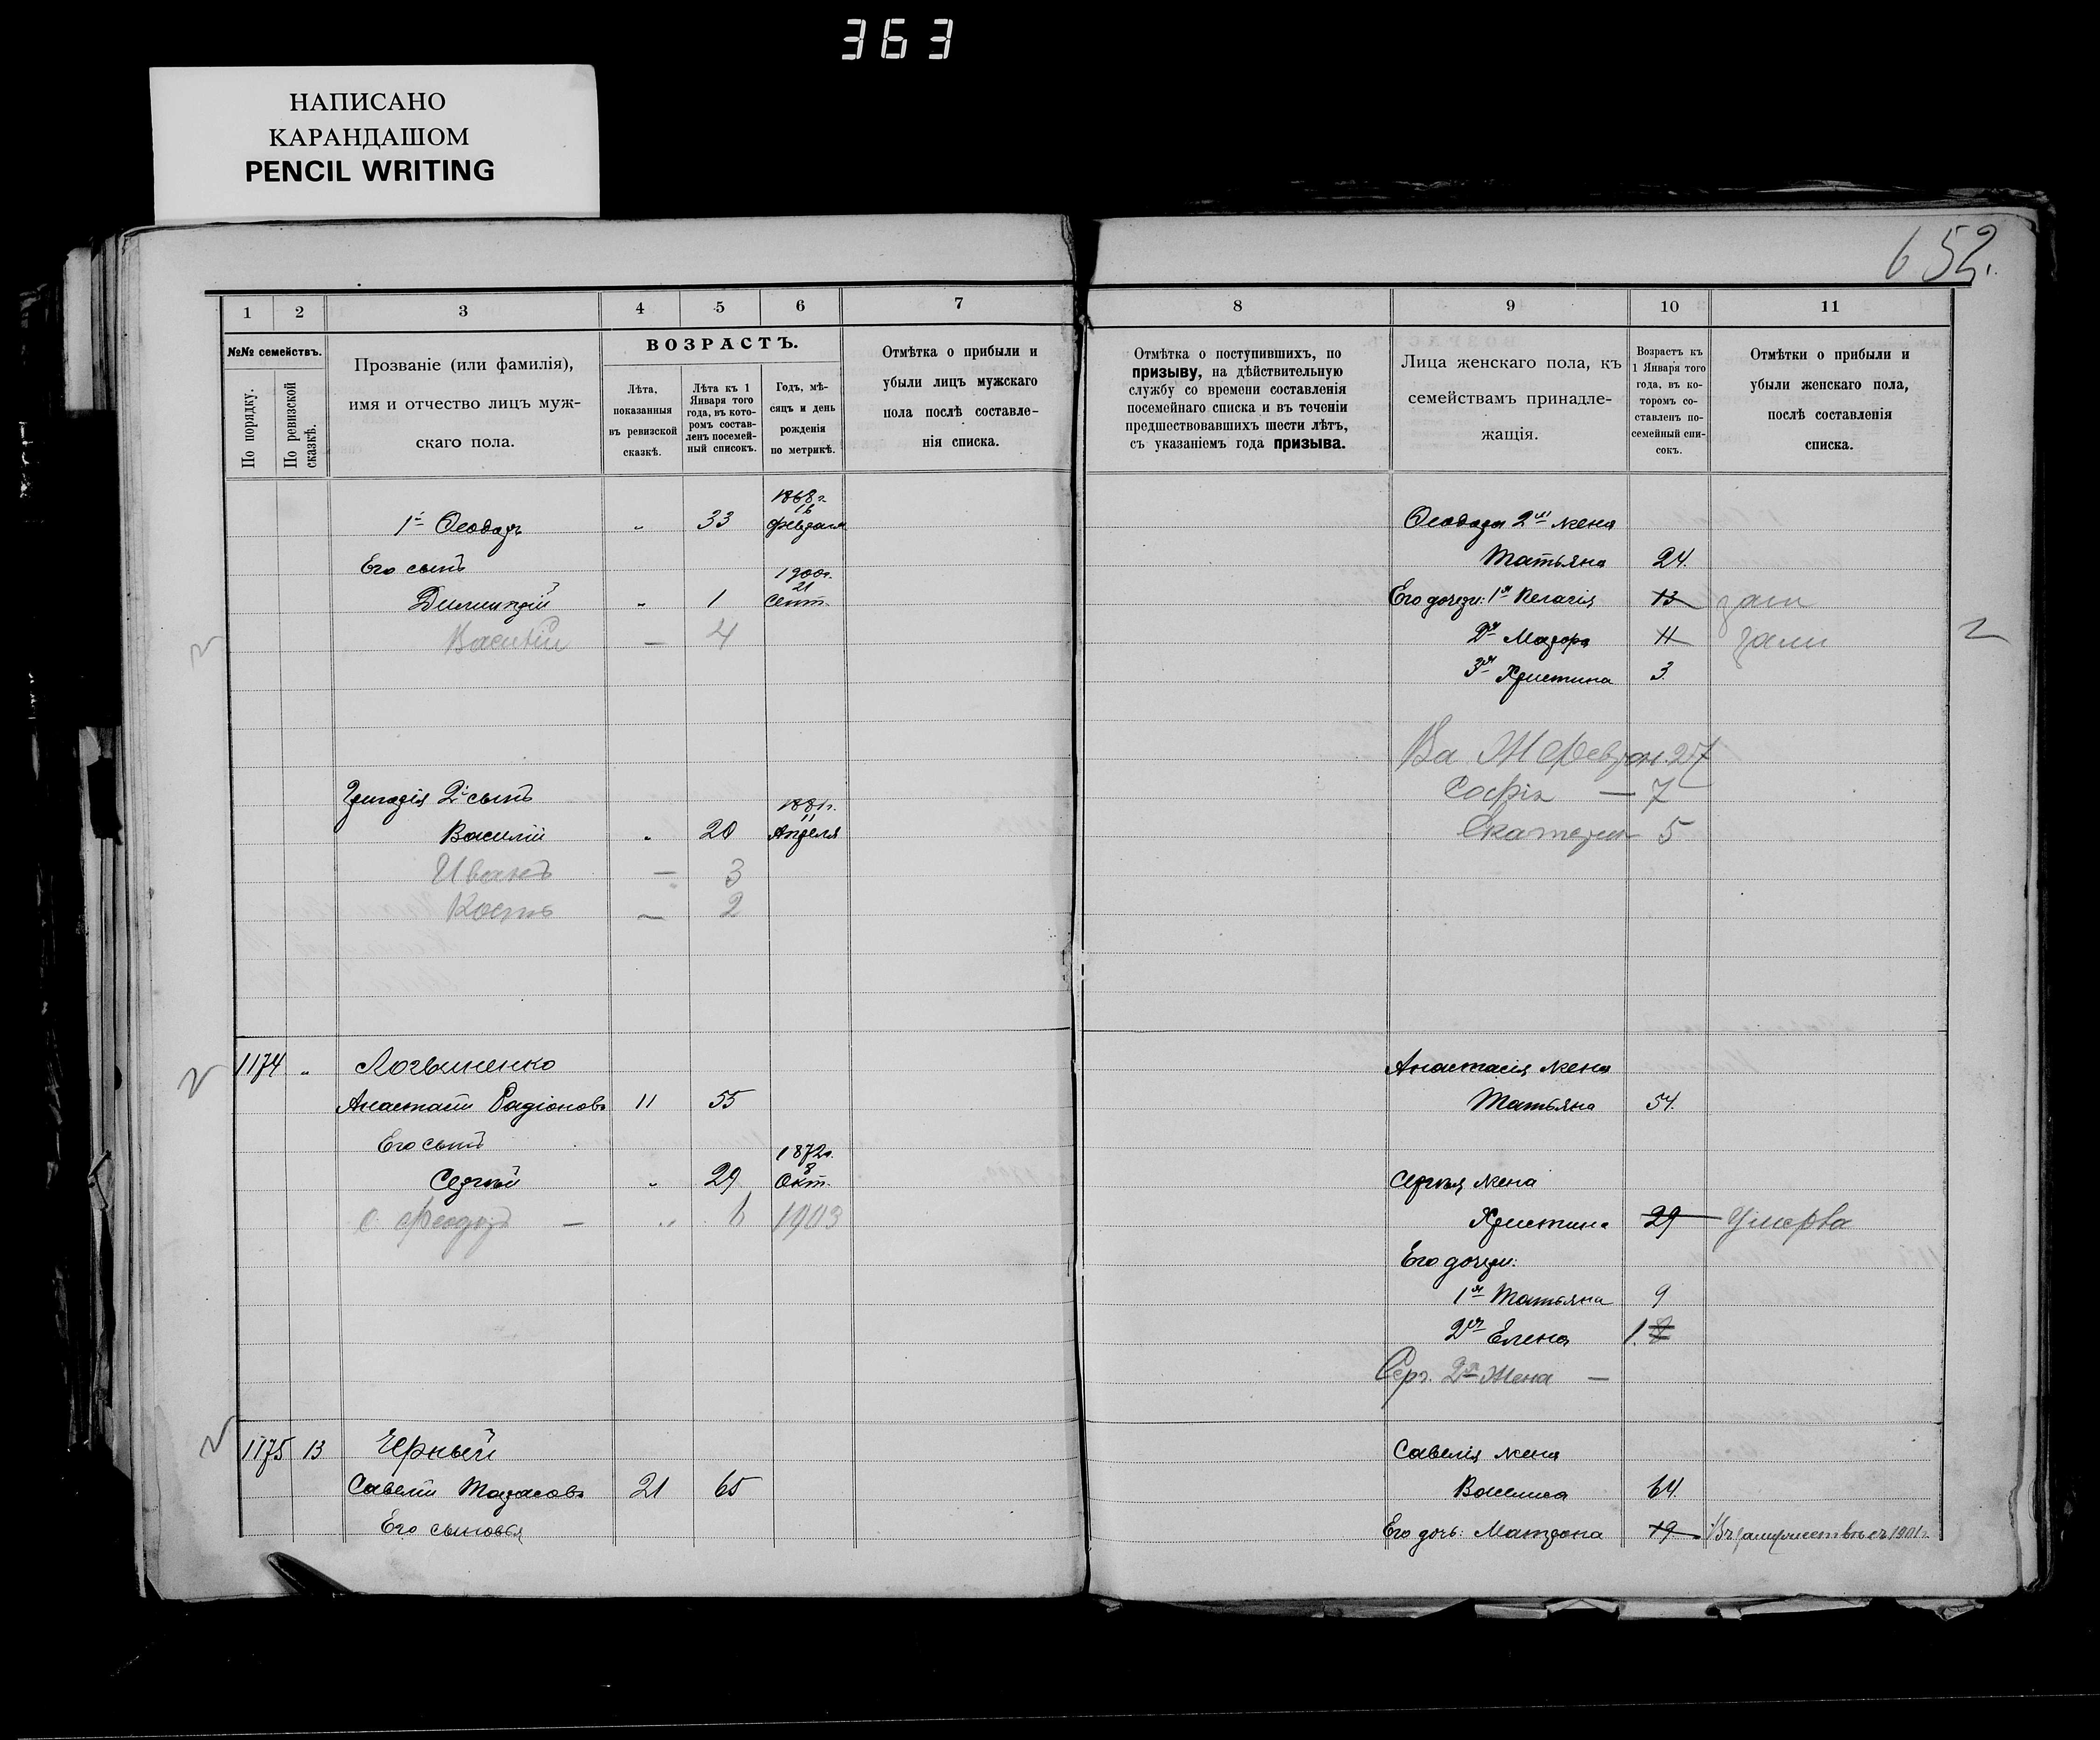 363
НАПИСАНО
КАРАНДАШОМ
PENCIL WRITING
652.
1 2 3 4 5 6 7
№№ семействъ.
По порядку.
По ревизской сказкѣ.
Прозваніе (или фамилія),
имя и отчество лицъ муж-
скаго пола.
ВОЗРАСТЪ.
Лѣта,
показанныя
въ ревизской
сказкѣ.
Лѣта къ 1
Января того
года, въ кото-
ромъ состав-
ленъ посемей-
ный списокъ.
Годъ, мѣ-
сяцъ и день
рожденія
по метрикѣ.
Отмѣтка о прибыли и
убыли лицъ мужскаго
пола послѣ составле-
нія списка.
1868 г.
16
1й Ѳеодоръ " 33 февраля
Его сынъ
1900г.
21
Димитрій " 1 Сент.
Василій — 4
Григорія 2й сынъ
1881г.
11
Василій " 20 Апреля
Иванъ — 3
Конст — 2
1174 " Логвиненко
Анастасій Радіоновъ 11 55
Его сынъ
1872г.
8
Сергѣй " 29 Окт.
с. Феодоръ — " 6 1903
1175 13 Черный
Савелій Тарасовъ 21 65
Его сыновья
8 9 10 11
Отмѣтка о поступившихъ, по
призыву, на дѣйствительную
службу со времени составленія
посемейнаго списка и въ теченіи
предшествовавшихъ шести лѣтъ,
съ указаніемъ года призыва.
Лица женскаго пола, къ
семействамъ принадле-
жащія.
Возрастъ къ
1 Января того
года, въ ко-
торомъ со-
ставленъ по-
семейный спи-
сокъ.
Отмѣтки о прибыли и
убыли женскаго пола,
послѣ составленія
списка.
Ѳеодора 2я жена
Татьяна 24.
Его дочери: 1я Пелагія 13 зам
2я Мавра 11 зам
3я Христина 3
Ва Ж 27
Софія — 7
Екатерин 5
Анастасія жена
Татьяна 54.
Сергѣя жена
Христина 29 Умерла
Его дочери:
1я Татьяна 9
2я Елена 1.
Серг. 2я Жена —
Савелія жена
Василиса 64.
Его дочь: Матрона 19 Въ замужествѣ съ 1901г.